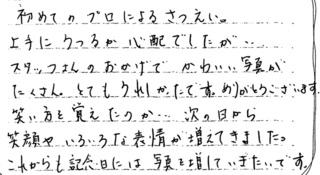 初めてのプロによるさつえい。
上手にうつるか心配でしたが…
スタッフさんのおかげでかわいい写真が
たくさん。とてもうれしかったです。ありがとうございます。
笑い方を覚えたのか… 次の日から
笑顔やいろいろな表情が増えてきました。
これからも記念日には写真を増していきたいです。